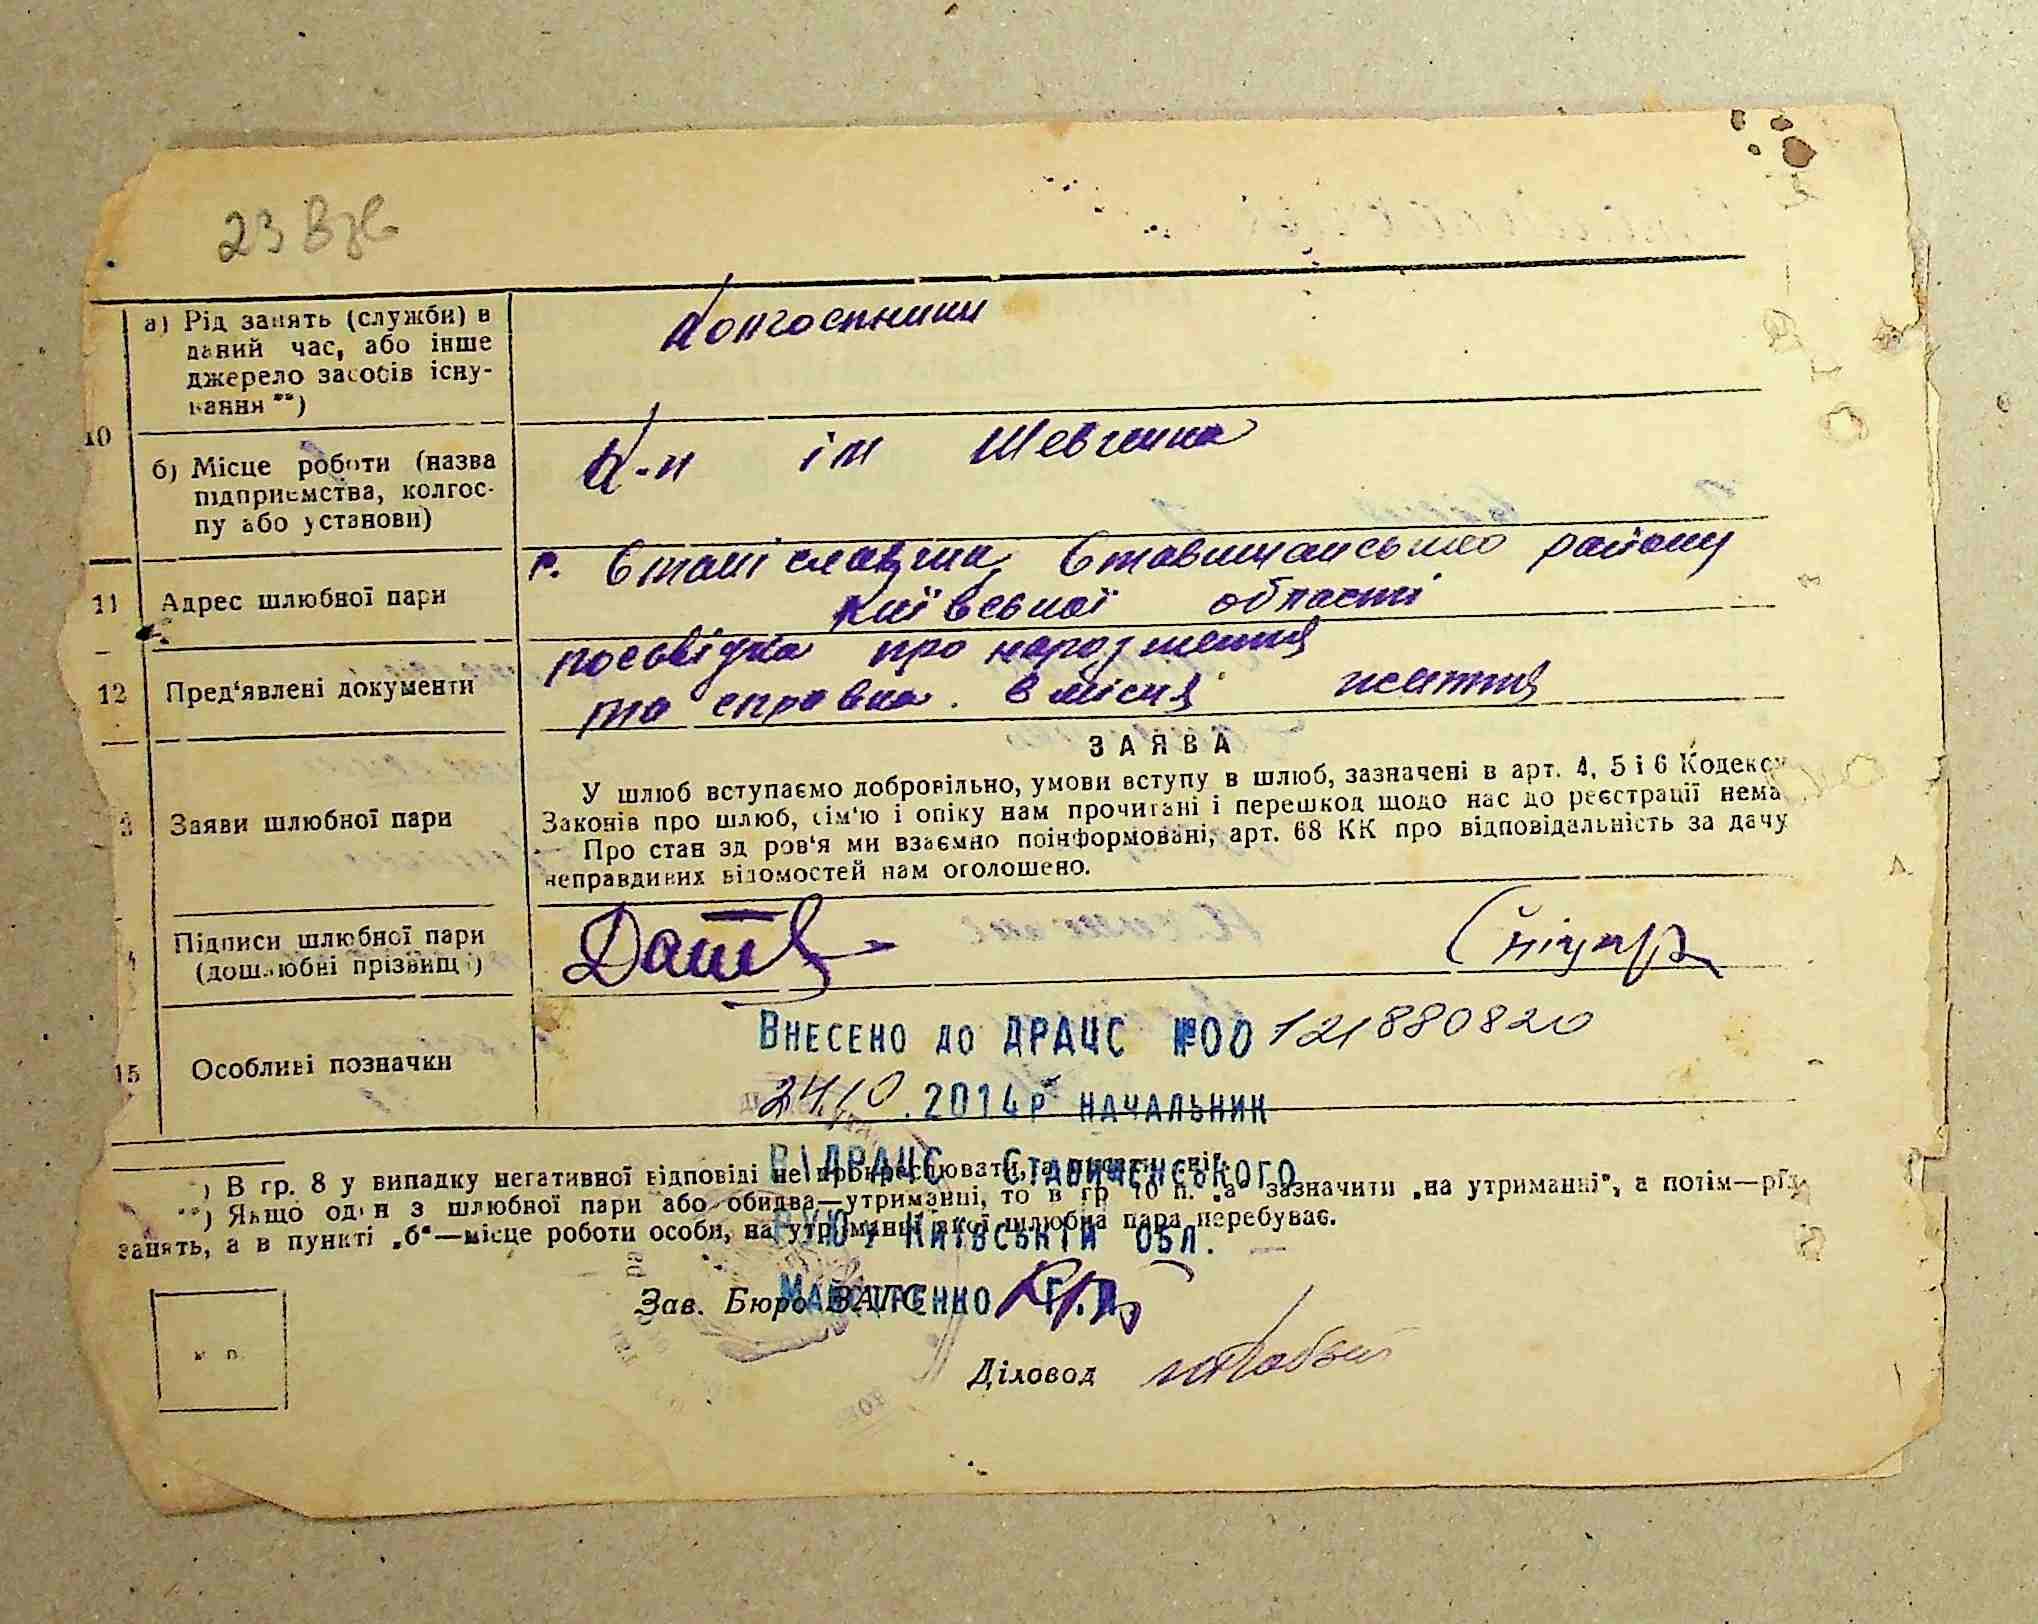 23
10
а) Рід занять (служби) в
даний час, або інше
джерело засобів існу-
вання **)
Колгоспники
б) Місце роботи (назва
підприємства, колгос-
пу або установи)
К-п ім Шевченка
11
Адрес шлюбної пари
с. Станіславчик, Ставищанського району
Київської області
12
Пред'явлені документи
посвідка про народження
та справка в місця життя
3
Заяви шлюбної пари
ЗАЯВА
У шлюб вступаємо добровільно, умови вступу в шлюб, зазначені в арт. 4, 5 і 6 Кодексу
Законів про шлюб, сім'ю і опіку нам прочитані і перешкод щодо нас до реєстрації нема
Про стан здоров'я ми взаємно поінформовані, арт. 68 КК про відповідальність за дачу
неправдивих відомостей нам оголошено.
4
Підписи шлюбної пари
(дошлюбні прізвищ)
15
Особливі позначки
Внесено до ДРАЦС №00121880820
24.10.2014р начальник
ВІДРАЦС Ставищенського
РУЮ у Київській обл.
Г.П.
*) В гр. 8 у випадку негативної відповіді не прокреслювати, а
**) Якщо один з шлюбної пари або обидва—утриманці, то в гр 10 п. „а" зазначити „на утриманні", а потім—рід
занять, а в пункті „б"—місце роботи особи, на утриманні якої шлюбна пара перебуває.
Зав. Бюро ЗАГС
Діловод
м п.